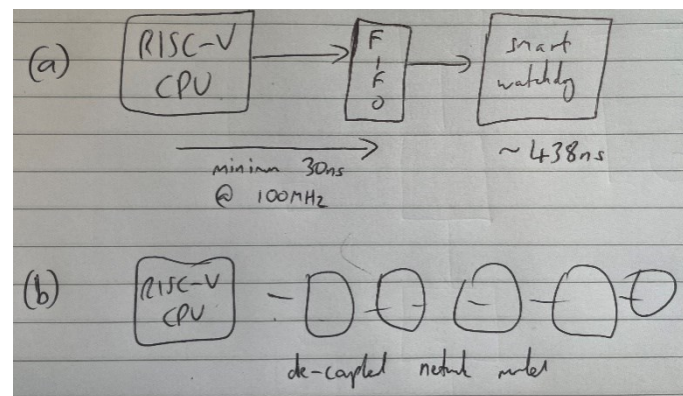 (a)
RISC-V
CPU
F
I
F
O
smart
watchdog
minimum 30ns
@ 100MHz
~438ns
(b)
RISC-V
CPU
de-coupled network model